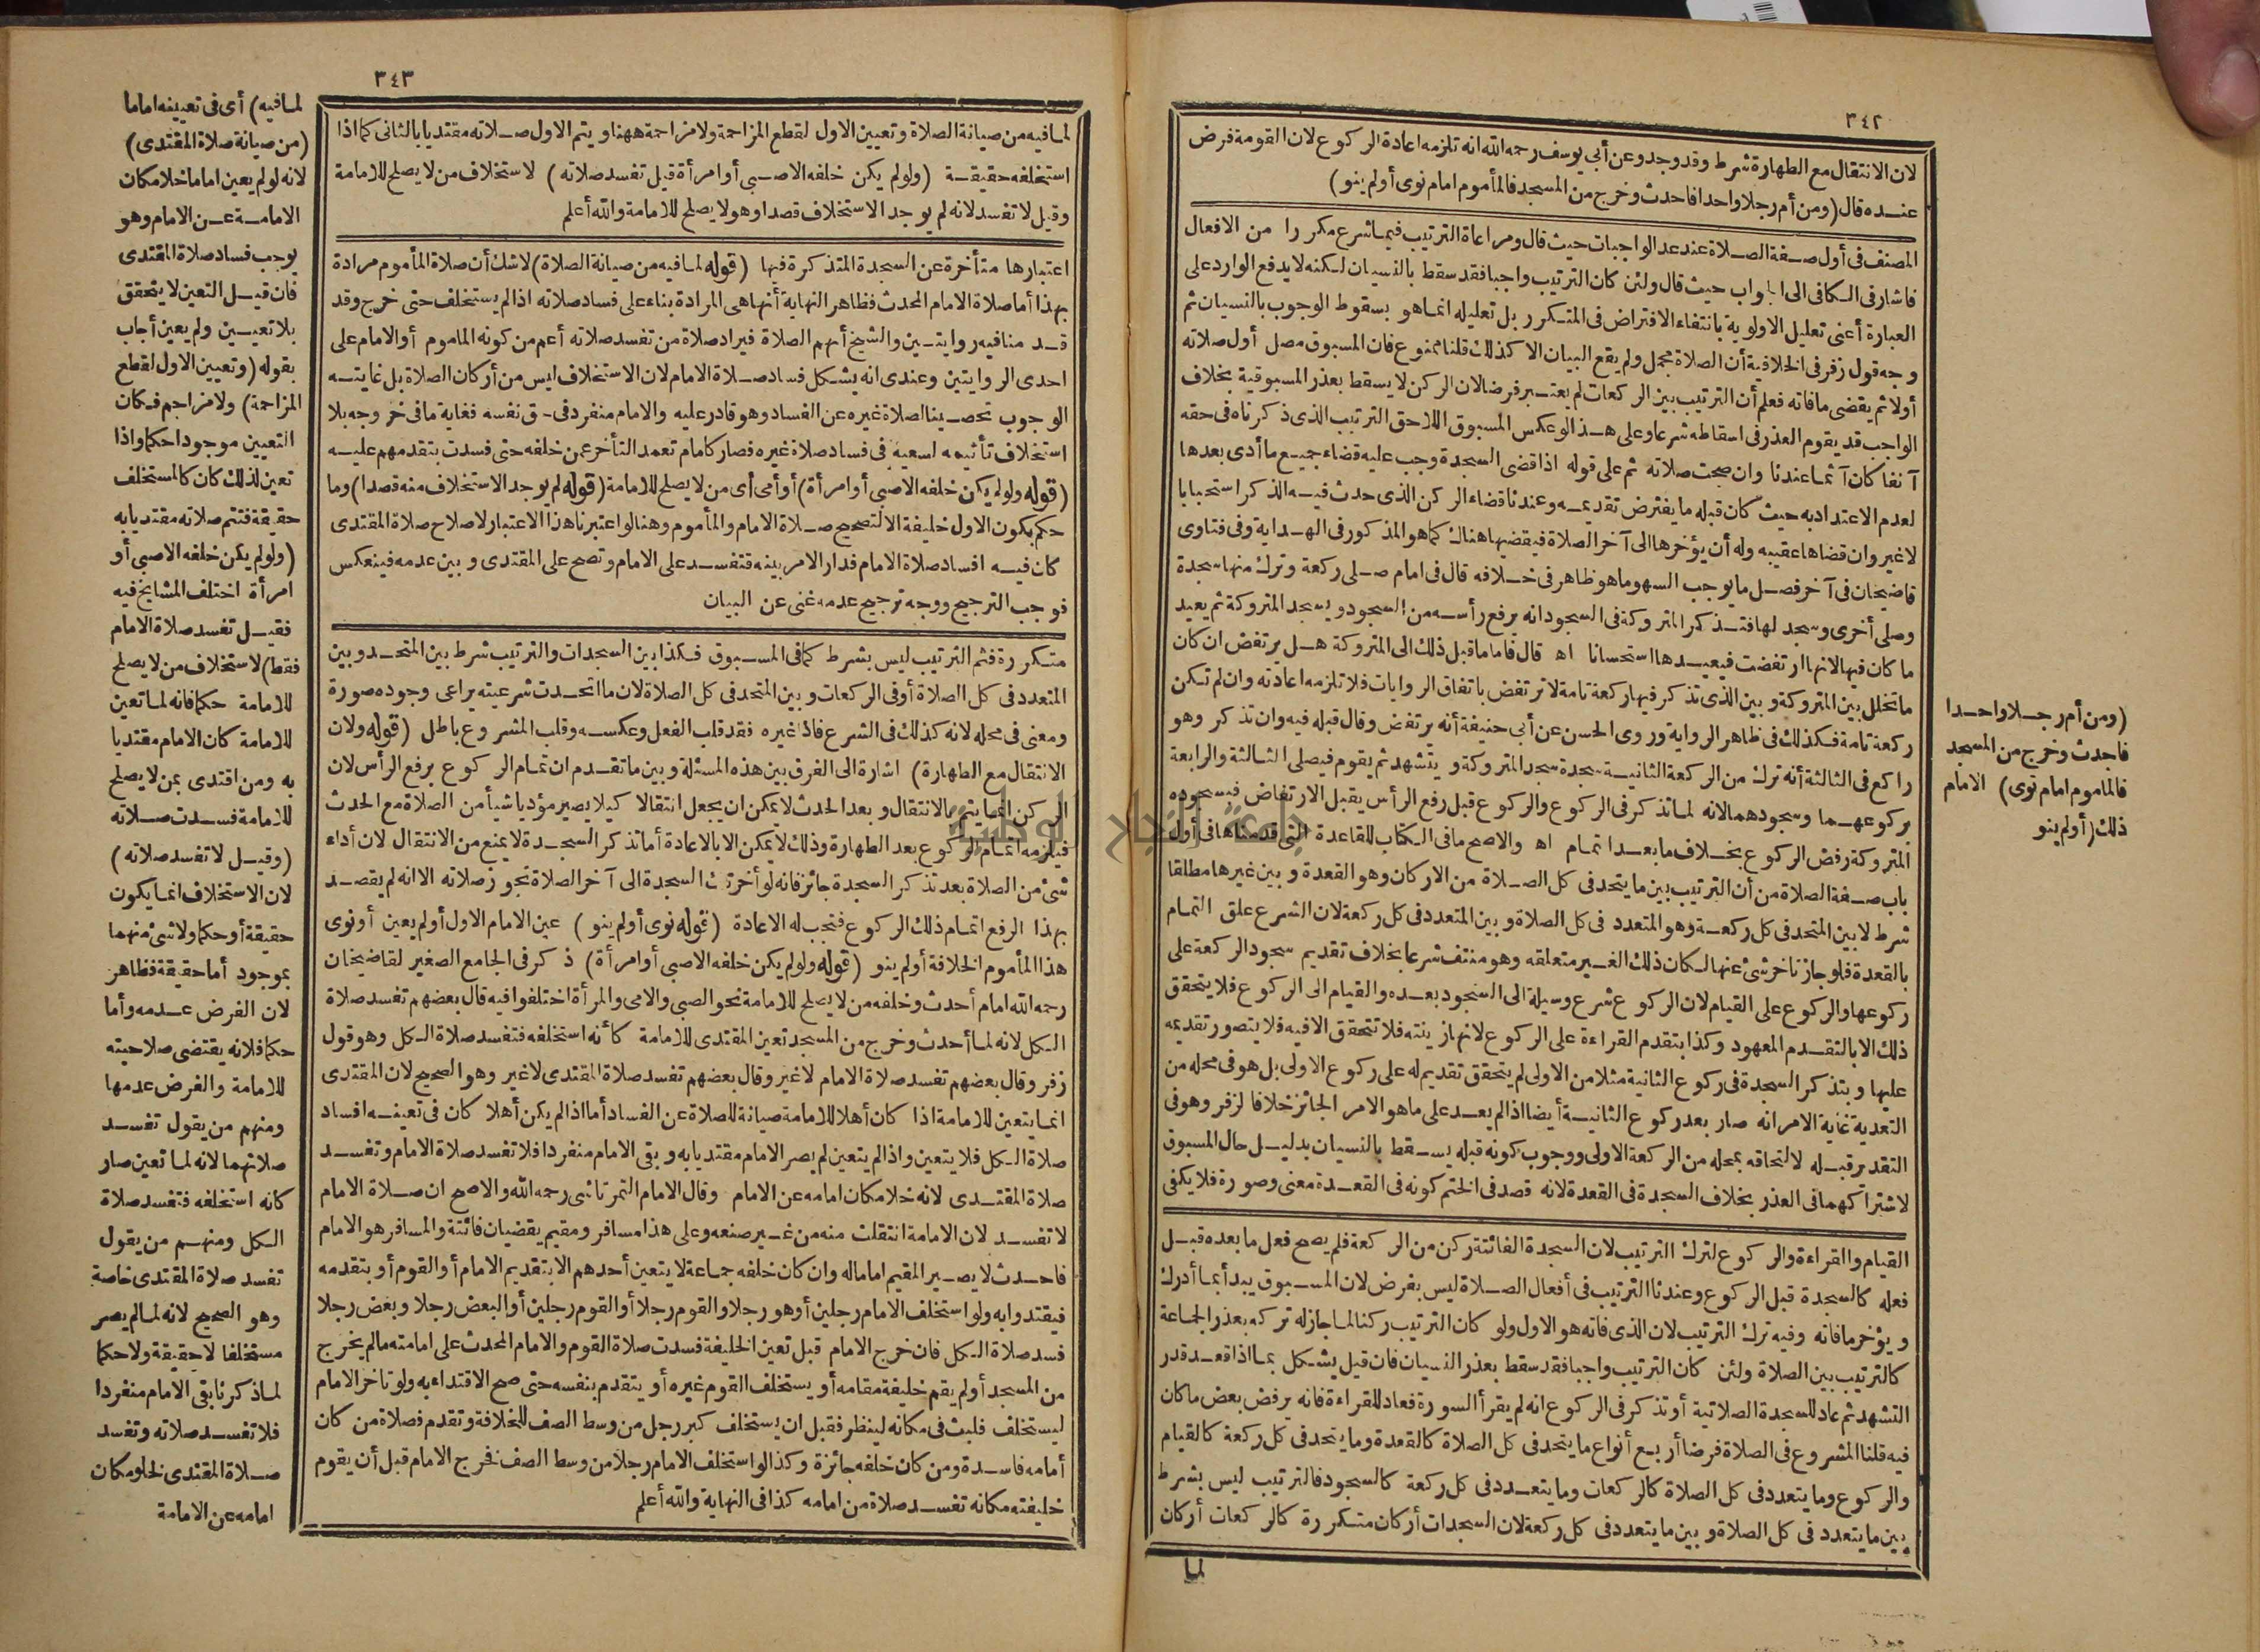 ٣٤٢
لان الانتقال مع الطهارة شرط وقد وجد وعن أبي يوسف رحمه الله انه تلزمه اعادة الركوع لان القومة فرض
عنده قال (ومن أم رجلا واحدا فاحدث وخرج من المسجد فالمأموم امام نوى أو لم ينو)
المصنف في أول صفة الصلاة عند عد الواجبات حيث قال ومراعاة الترتيب فيما شرع مكررا من الافعال
فاشار في الكافي الى الجواب حيث قال ولئن كان الترتيب واجبا فقد سقط بالنسيان لكنه لا يدفع الوارد على
العبارة أعنى تعليل الاولوية بانتفاء الافتراض في المتكرر بل تعليله انما هو بسقوط الوجوب بالنسيان ثم
وجه قول زفر في الخلافية أن الصلاة مجمل ولم يقع البيان الا كذلك قلنا ممنوع فان المسبوق مصل أول صلاته
أولا ثم يقضى ما فاته فعلم أن الترتيب بين الركعات لم يعتبر فرضا لان الركن لا يسقط بعذر المسبوقية بخلاف
الواجب قد يقوم العذر في اسقاطه شرعا وعلى هذا لو عكس المسبوق اللاحق الترتيب الذى ذكرناه في حقه
آنفا كان آثما عندنا وان صحت صلاته ثم على قوله اذا قضى السجدة وجب عليه قضاء جميع ما أدى بعدها
لعدم الاعتداد به حيث كان قبله ما يفترض تقديمه وعندنا قضاء الركن الذى حدث فيه الذكر استحبابا
لا غير وان قضاها عقيبه وله أن يؤخرها الى آخر الصلاة فيقضيها هناك كما هو المذكور في الهداية وفى فتاوى
قاضيخان في آخر فصل ما يوجب السهو ما هو ظاهر في خلافه قال في امام صلى ركعة وترك منها سجدة
وصلى أخرى وسجد لها فتذكر المتروكة في السجود انه يرفع رأسه من السجود ويسجد المتروكة ثم يعيد
ما كان فيها لانها ارتفضت فيعيدها استحسانا اه قال فاما ما قبل ذلك الى المتروكة هل يرتفض ان كان
ما تخلل بين المتروكة وبين الذى تذكر فيها ركعة تامة لا ترتفض باتفاق الروايات فلا تلزمه اعادته وان لم تكن
ركعة تامة فكذلك في ظاهر الرواية وروى الحسن عن أبي حنيفة أنه يرتفض وقال قبله فيه وان تذكر وهو
راكع في الثالثة أنه ترك من الركعة الثانية سجدة سجد المتروكة ويتشهد ثم يقوم فيصلى الثالثة والرابعة
بركوعهما وسجودهما لانه لما تذكر في الركوع والركوع قبل رفع الرأس يقبل الارتفاض فبسجوده
المتروكة رفض الركوع بخلاف ما بعد اتمام اه والاصح ما في الكتاب للقاعدة التى قدمناها في أول
باب صفة الصلاة من أن الترتيب بين ما يتحد في كل الصلاة من الاركان وهو القعدة وبين غيرها مطلقا
شرط لا بين المتحد في كل ركعة وهو المتعدد في كل الصلاة وبين المتعدد في كل ركعة لان الشرع علق التمام
بالقعدة فلو جاز تاخر شئ عنها لكان ذلك الغير متعلقه وهو منتف شرعا بخلاف تقديم سجود الركعة على
ركوعها والركوع على القيام لان الركوع شرع وسيلة الى السجود بعده والقيام الى الركوع فلا يتحقق
ذلك الا بالتقدم المعهود وكذا بتقدم القراءة على الركوع لانها زينته فلا تتحقق الا فيه فلا يتصور تقديمه
عليها وبتذكر السجدة في ركوع الثانية مثلا من الاولى لم يتحقق تقديم له على ركوع الاولى بل هو في محله من
التعدية غاية الامر انه صار بعد ركوع الثانية أيضا اذا لم يعد على ما هو الامر الجائز خلافا لزفر وهو في
التقدير قبله لالتحاقه بمحله من الركعة الاولى ووجوب كونه قبله يسقط بالنسيان بدليل حال المسبوق
لاشتراكهما في العذر بخلاف السجدة في القعدة لانه قصد في الختم كونه في القعدة معنى وصورة فلا يكفى
القيام والقراءة والركوع لترك الترتيب لان السجدة الفائتة ركن من الركعة فلم يصح فعل ما بعده قبل
فعله كالسجدة قبل الركوع وعندنا الترتيب في أفعال الصلاة ليس بفرض لان المسبوق يبدأ بما أدرك
ويؤخر ما فاته وفيه ترك الترتيب لان الذى فاته هو الاول ولو كان الترتيب ركنا لما جاز له تركه بعذر الجماعة
كالترتيب بين الصلاة ولئن كان الترتيب واجبا فقد سقط بعذر النسيان فان قيل يشكل بما اذا قعد قدر
التشهد ثم عاد للسجدة الصلاتية أو تذكر في الركوع انه لم يقرأ السورة فعاد للقراءة فانه يرفض بعض ما كان
فيه قلنا المشروع في الصلاة فرضا أربع أنواع ما يتحد في كل الصلاة كالقعدة وما يتحد في كل ركعة كالقيام
والركوع وما يتعدد في كل الصلاة كالركعات وما يتعدد في كل ركعة كالسجود فالترتيب ليس بشرط
بين ما يتعدد في كل الصلاة وبين ما يتعدد في كل ركعة لان السجدات أركان متكررة كالركعات أركان
لما
(ومن أم رجلا واحدا
فاحدث وخرج من المسجد
فالمأموم امام نوى) الامام
ذلك (أو لم ينو
٣٤٣
لما فيه من صيانة الصلاة وتعيين الاول لقطع المزاحمة ولا مزاحمة ههنا ويتم الاول صلاته مقتديا بالثانى كما اذا
استخلفه حقيقة (ولو لم يكن خلفه الا صبى أو امرأة قيل تفسد صلاته) لاستخلاف من لا يصلح للامامة
وقيل لا تفسد لانه لم يوجد الاستخلاف قصدا وهو لا يصلح للامامة والله أعلم
اعتبارها متأخرة عن السجدة المتذكرة فيها (قوله لما فيه من صيانة الصلاة) لا شك أن صلاة المأموم مرادة
بهذا أما صلاة الامام المحدث فظاهر النهاية أنها هى المرادة بناء على فساد صلاته اذا لم يستخلف حتى خرج وقد
قدمنا فيه روايتين والشيخ أبهم الصلاة فيراد صلاة من تفسد صلاته أعم من كونه الماموم أو الامام على
احدى الروايتين وعندى انه يشكل فساد صلاة الامام لان الاستخلاف ليس من أركان الصلاة بل غايته
الوجوب تحصينا لصلاة غيره عن الفساد وهو قادر عليه والامام منفرد في حق نفسه فغاية ما في خروجه بلا
استخلاف تأثيمه لسعيه في فساد صلاة غيره فصار كامام تعمد التأخر عمن خلفه حتى فسدت بتقدمهم عليه
(قوله ولو لم يكن خلفه الا صبى أو امرأة) أو أمى أى من لا يصلح للامامة (قوله لم يوجد الاستخلاف منه قصدا) وما
حكم بكون الاول خليفة الا لتصحيح صلاة الامام والمأموم وهنا لو اعتبرنا هذا الاعتبار لاصلاح صلاة المقتدى
كان فيه افساد صلاة الامام فدار الامر بينه فتفسد على الامام وتصح على المقتدى وبين عدمه فينعكس
فوجب الترجيح ووجه ترجيح عدمه غنى عن البيان
متكررة فثم الترتيب ليس بشرط كما في المسبوق فكذا بين السجدات والترتيب شرط بين المتحد وبين
المتعدد في كل الصلاة أو في الركعات وبين المتحد في كل الصلاة لان ما اتحدت شرعيته يراعى وجوده صورة
ومعنى في محله لانه كذلك في الشرع فاذا غيره فقد قلب الفعل وعكسه وقلب المشروع باطل (قوله ولان
الانتقال مع الطهارة) اشارة الى الفرق بين هذه المسئلة وبين ما تقدم ان تمام الركوع برفع الرأس لان
الركن انما يتم بالانتقال وبعد الحدث لا يمكن ان يجعل انتقالا كيلا يصير مؤديا شيأ من الصلاة مع الحدث
فيلزمه اتمام الركوع بعد الطهارة وذلك لا يمكن الا بالاعادة أما تذكر السجدة لا يمنع من الانتقال لان أداء
شئ من الصلاة بعد تذكر السجدة جائز فانه لو أخرت السجدة الى آخر الصلاة تجوز صلاته الا انه لم يقصد
بهذا الرفع اتمام ذلك الركوع فتجب له الاعادة (قوله نوى أو لم ينو) عين الامام الاول أو لم يعين أو نوى
هذا المأموم الخلافة أو لم ينو (قوله ولو لم يكن خلفه الا صبى أو امرأة) ذكر في الجامع الصغير لقاضيخان
رحمه الله امام أحدث وخلفه من لا يصلح للامامة نحو الصبى والامى والمرأة اختلفوا فيه قال بعضهم تفسد صلاة
الكل لانه لما أحدث وخرج من المسجد تعين المقتدى للامامة كأنه استخلفه فتفسد صلاة الكل وهو قول
زفر وقال بعضهم تفسد صلاة الامام لا غير وقال بعضهم تفسد صلاة المقتدى لا غير وهو الصحيح لان المقتدى
انما يتعين للامامة اذا كان أهلا للامامة صيانة للصلاة عن الفساد أما اذا لم يكن أهلا كان في تعينه افساد
صلاة الكل فلا يتعين واذا لم يتعين لم يصر الامام مقتديا به وبقى الامام منفردا فلا تفسد صلاة الامام وتفسد
صلاة المقتدى لانه خلا مكان امامه عن الامام وقال الامام التمرتاشى رحمه الله والاصح ان صلاة الامام
لا تفسد لان الامامة انتقلت منه من غير صنعه وعلى هذا مسافر ومقيم يقضيان فائتة والمسافر هو الامام
فاحدث لا يصير المقيم اماما له وان كان خلفه جماعة لا يتعين أحدهم الا بتقديم الامام أو القوم أو بتقدمه
فيقتدوا به ولو استخلف الامام رجلين أو هو رجلا والقوم رجلا أو القوم رجلين أو البعض رجلا وبعض رجلا
فسد صلاة الكل فان خرج الامام قبل تعين الخليفة فسدت صلاة القوم والامام المحدث على امامته ما لم يخرج
من المسجد أو لم يقم خليفة مقامه أو يستخلف القوم غيره أو يتقدم بنفسه حتى صح الاقتداء به ولو تاخر الامام
ليستخلف فلبث في مكانه لينظر فقبل ان يستخلف كبر رجل من وسط الصف للخلافة وتقدم فصلاة من كان
أمامه فاسدة ومن كان خلفه جائزة وكذا لو استخلف الامام رجلا من وسط الصف فخرج الامام قبل أن يقوم
خليفته مكانه تفسد صلاة من امامه كذا في النهاية والله أعلم
لما فيه) أى في تعيينه اماما
(من صيانة صلاة المقتدى)
لانه لو لم يعين اماما خلا مكان
الامامة عن الامام وهو
يوجب فساد صلاة المقتدى
فان قيل التعين لا يتحقق
بلا تعيين ولم يعين أجاب
بقوله (وتعيين الاول لقطع
المزاحمة) ولا مزاحم فكان
التعيين موجودا حكما واذا
تعين لذلك كان كالمستخلف
حقيقة فتتم صلاته مقتديا به
(ولو لم يكن خلفه الا صبى أو
امرأة اختلف المشايخ فيه
فقيل تفسد صلاة الامام
فقط) لاستخلاف من لا يصلح
للامامة حكما فانه لما تعين
للامامة كان الامام مقتديا
به ومن اقتدى بمن لا يصلح
للامامة فسدت صلاته
(وقيل لا تفسد صلاته)
لان الاستخلاف انما يكون
حقيقة أو حكما ولا شئ منهما
بموجود أما حقيقة فظاهر
لان الفرض عدمه وأما
حكما فلانه يقتضى صلاحيته
للامامة والفرض عدمها
ومنهم من يقول تفسد
صلاتهما لانه لما تعين صار
كانه استخلفه فتفسد صلاة
الكل ومنهم من يقول
تفسد صلاة المقتدى خاصة
وهو الصحيح لانه لما لم يصر
مستخلفا لا حقيقة ولا حكما
لما ذكرنا بقى الامام منفردا
فلا تفسد صلاته وتفسد
صلاة المقتدى لخلو مكان
امامه عن الامامة